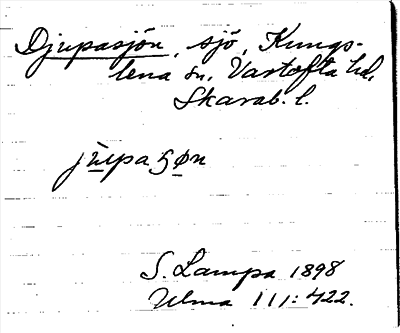 Djupasjön, sjö, Kungs-
lena sn, Vartofta hd,
Skarab. l.
S. Lampa 1898
Ulma 111:422.